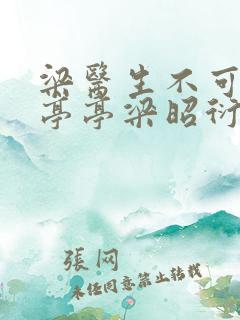 梁醫生不可
亭亭梁昭衍
張网
未经同意禁止转载